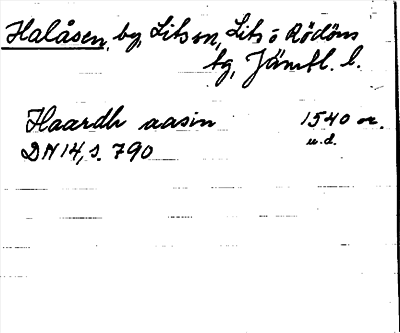 Halåsen, by, Lits sn, Lits o Rödöns
tg, Jämtl. l.
Haardh aasin 1540 or.
DN 14, s. 790 u.d.